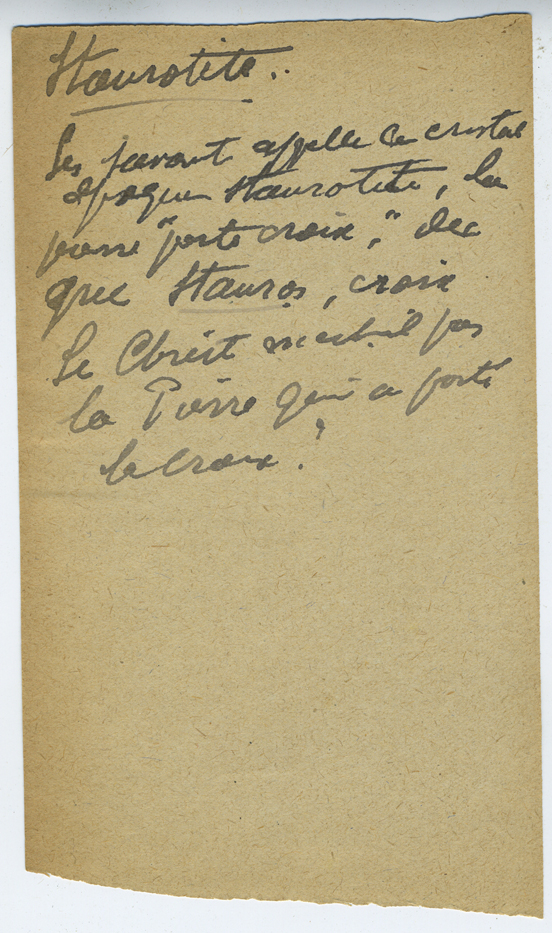 Staurotite..
Les savants appelle ce cristal
opaque Staurotite, la
pierre "porte croix," du
grec Stauros, croix
Le Christ n'est-il pas
la Pierre qui a porté
la croix ?